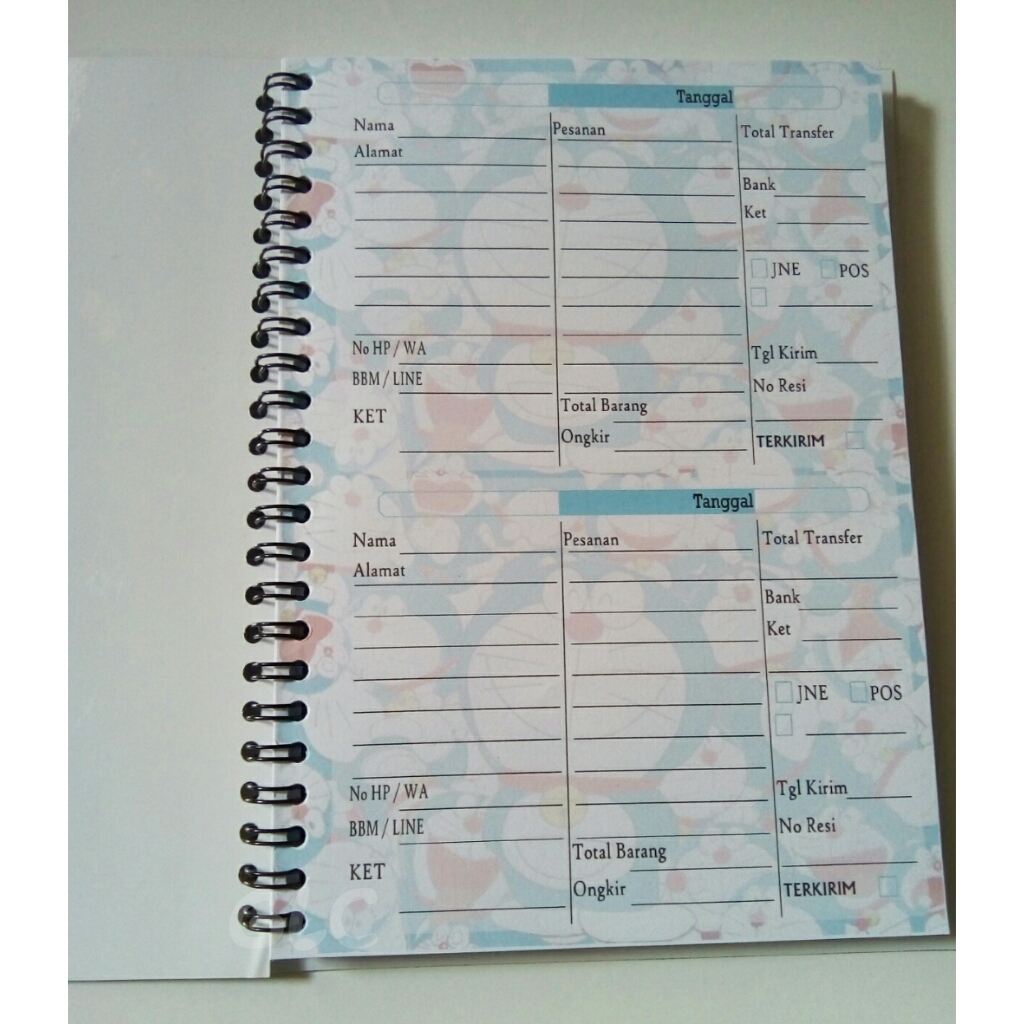 Tanggal
Nama Pesanan Total Transfer
Alamat
Bank
Ket
JNE POS
No HP / WA Tgl Kirim
BBM / LINE No Resi
KET Total Barang
Ongkir TERKIRIM
Tanggal
Nama Pesanan Total Transfer
Alamat
Bank
Ket
JNE POS
No HP / WA Tgl Kirim
BBM / LINE No Resi
KET Total Barang
Ongkir TERKIRIM